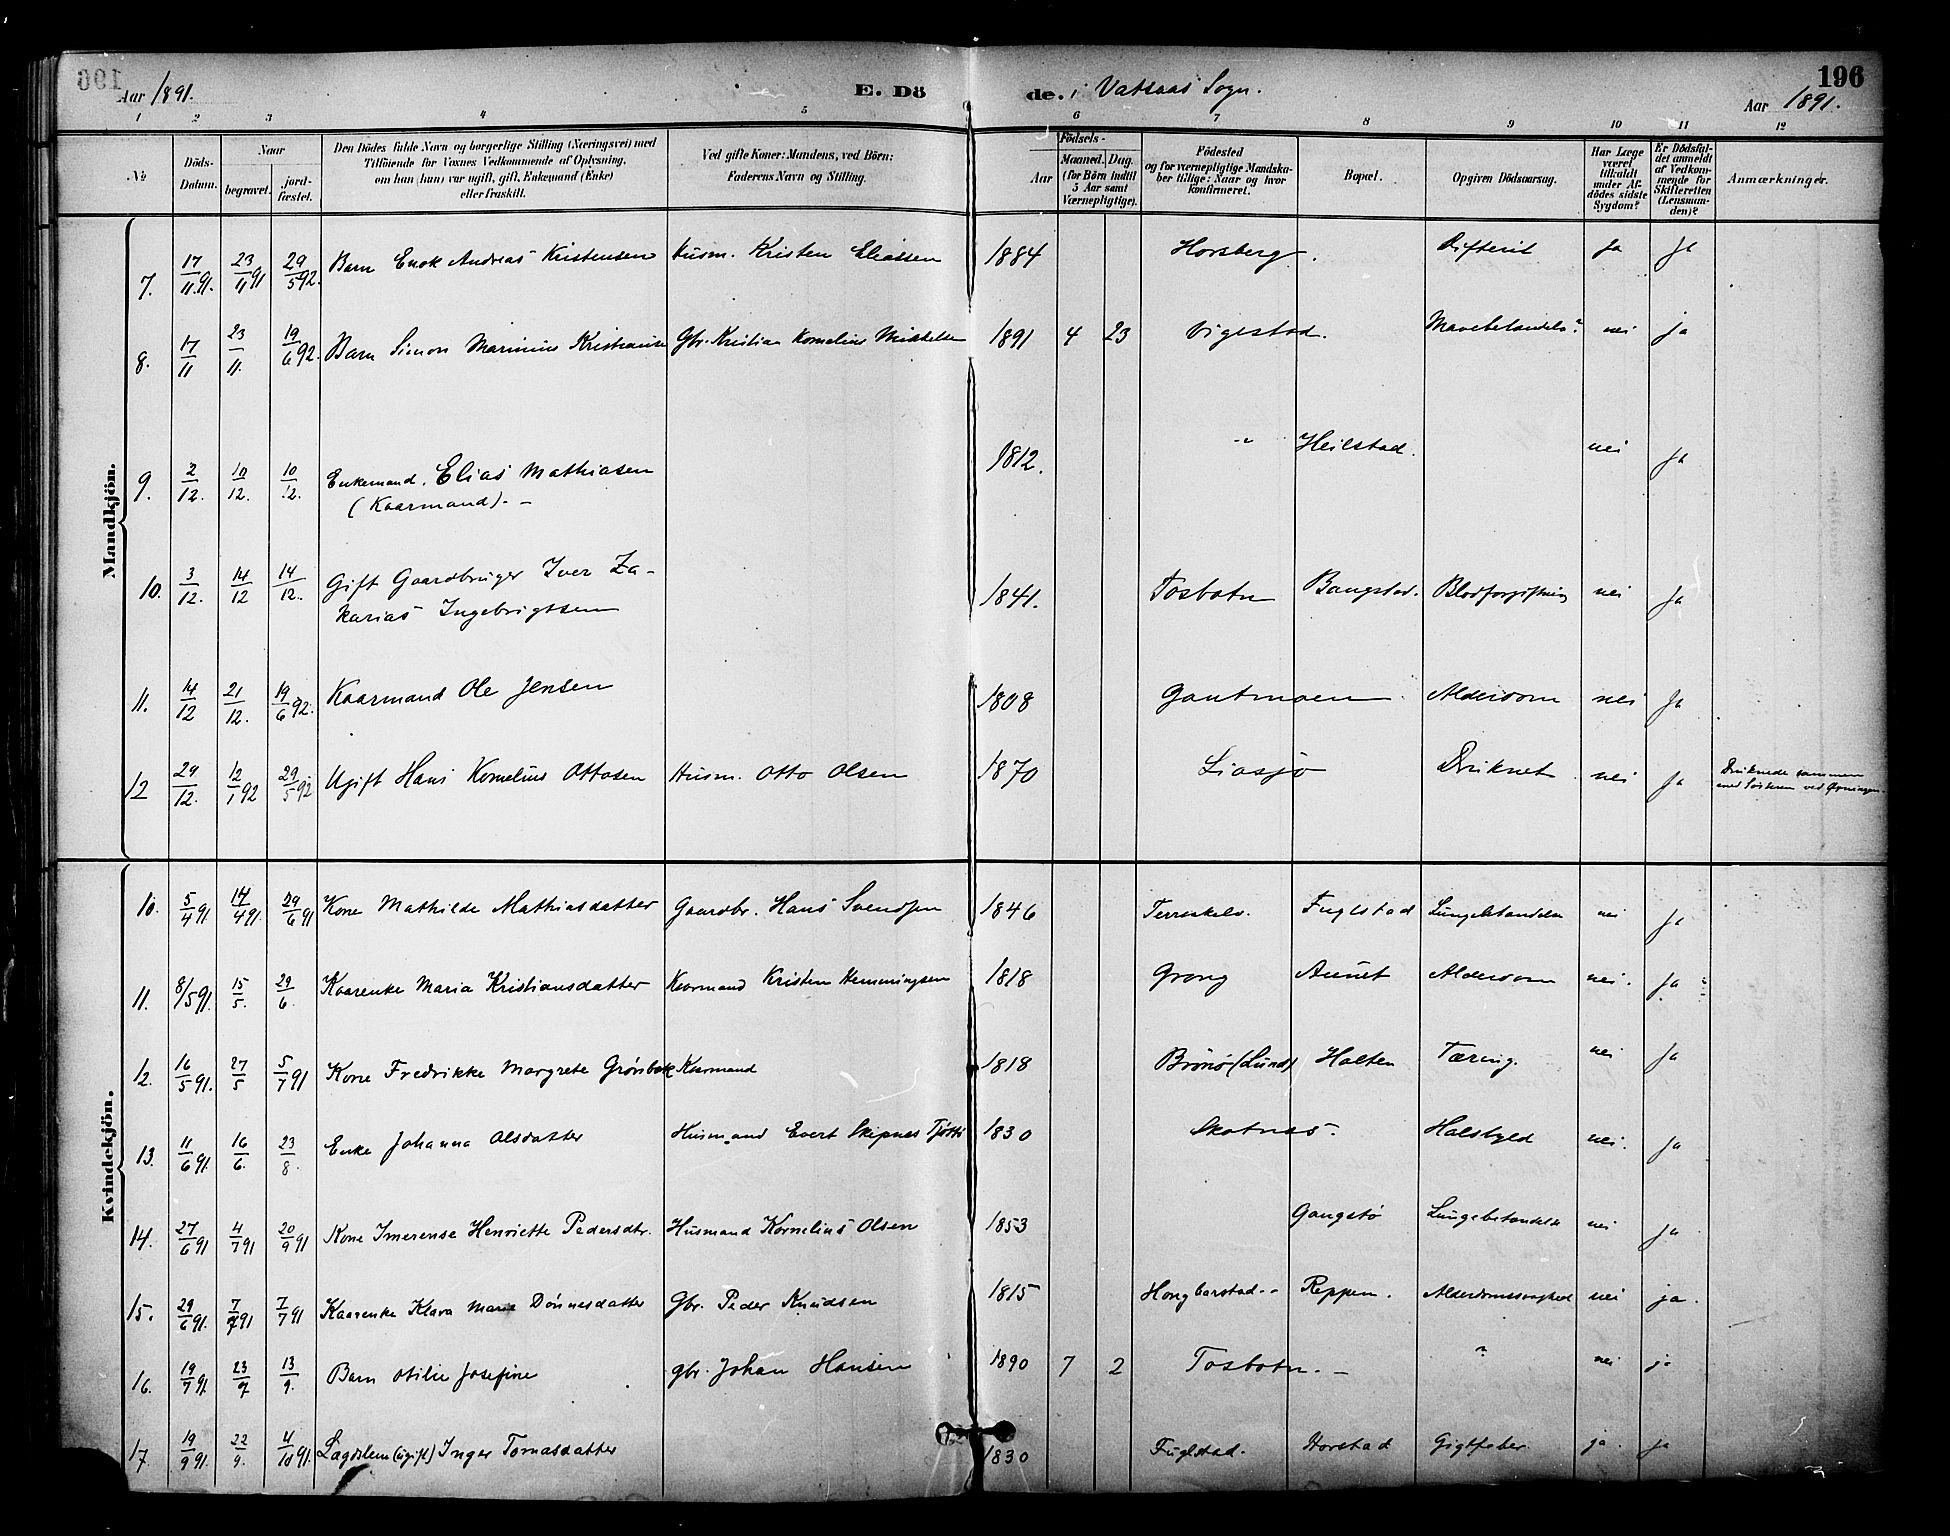 196
Aar 1891.
E. Dö
de. i Vatsaas Sogn.
196
Aar 1891.
1 2 3 4 5 6 7 8 9 10 11 12
No
Döds-
Datum.
Naar
begravet.
jord-
fæstet.
Den Dödes fulde Navn og borgerlige Stilling (Næringsvei) med
Tilföiende for Voxnes Vedkommende af Oplysning,
om han (hun) var ugift, gift, Enkemand (Enke)
eller fraskilt.
Ved gifte Koner: Mandens, ved Börn:
Faderens Navn og Stilling.
Födsels-
Aar
Maaned. Dag.
(for Börn indtil
5 Aar samt
Værnepligtige).
Födested
og for værnepligtige Mandska-
ber tillige: Naar og hvor
konfirmeret.
Bopæl.
Opgiven Dödsaarsag.
Har Læge
været
tilkaldt
under Af-
dödes sidste
Sygdom?
Er Dödsfal-
det anmeldt
af Vedkom-
mende for
Skifteretten
(Lensman-
den)?
Anmærkninger.
Mandkjön.
7. 17/11 91. 23/11 91 29/5 92. Barn Enok Andreas Kristensen Husm. Kristen Eliassen 1884 Horsberg. Difterit Ja Ja
8. 17/11 23/11. 19/6 92. Barn Simon Marinius Kristiansen Gbr. Kristian Kornelius Mikkelsen 1891 4 23 Vigestad. Mavebetændels? nei ja
9. 2/12. 10/12. 10/12. Enkemand. Elias Mathiasen 1812. " Heilstad. nei Ja
(Kaarmand). -
10. 3/12. 14/12 14/12. Gift Gaardbruger Iver Za- 1841. Tosbotn Bangstad. Blodforgiftning nei Ja
karias Ingebrigtsen
11. 14/12 21/12. 19/6 92. Kaarmand Ole Jensen 1808 Gautmoen. Alderdom nei Ja
12 29/12. 12/1 92 29/5 92 Ugift Hans Kornelius Ottosen Husm. Otto Olsen 1870 Liasjø Druknet nei Ja Druknede sammen
med Søsteren ved
Kvindekjön.
10. 5/4 91 14/4 91. 29/6 91 Kone Mathilde Mathiasdatter Gaardbr. Hans Svendsen 1846 Terraskelv. Fuglstad Lungebetændelse nei Ja
11. 8/5 91. 15/5. 29/6. Kaarenke Maria Kristiansdatter Kaarmand Kristen Hemmingsen 1818 Grong Aunet Alderdom nei. Ja
12. 16/5 91. 27/5 5/7 91 Kone Fredrikke Margrete Grønbek Kaarmand 1818 Brønø (Lund) Holten Tæring. nei Ja
13. 11/6 91. 16/6. 23/8. Enke Johanna Olsdatter Husmand Evert Skipnes Tjøttø 1830 Skotnes. Halsbyld nei. Ja
14. 27/6 91 4/7 91 20/9 91 Kone Imerense Henriette Pedersdtr. Husmand Kornelius Olsen 1853 Gangstø Lungebetændelse nei Ja
15. 29/6 91. 7/7 91 7/7 91 Kaarenke Klara Maria Dønnesdatter Gbr. Peder Knudsen 1815 Hongbarstad. Reppen. Alderdomssvaghed nei ja.
16. 19/7 91. 23/7 13/9. Barn Otilie Josefine gbr. Johan Hansen 1890 7 2 Tosbotn. - ? nei ja
17. 19/9 91. 22/9. 4/10 91. Lægdslem (ugift) Inger Tomasdatter 1830 Fuglstad. Horstad Gigtfeber ja. ja